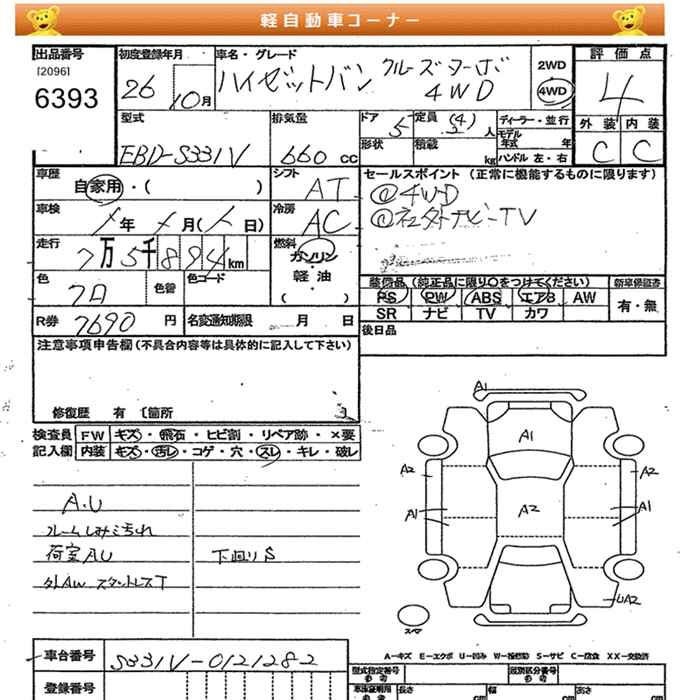 軽自動車コーナー
出品番号
[2096]
6393
初度登録年月
26 10月
車名・グレード
ハイゼットバン クルーズターボ
4WD
2WD
4WD
評価点
4
型式
EBD-S331V
排気量
660 cc
ドア
5
定員 (4)
人
形状
積載
kg
ディーラー・並行
モデル
年式 年
ハンドル 左・右
外装 内装
C C
車歴
自家用・( )
シフト
AT
セールスポイント (正常に機能するものに限ります)
①4WD
②社外ナビーTV
車検
年 月( 日)
冷房
AC
走行
7万5千894km
燃料
ガソリン
軽油
( )
色
色替
色コード
装備品 (純正品に限り○をつけてください)
新車保証書
PS PW ABS エアB AW
SR ナビ TV カワ
有・無
R券 7690 円
名変通知期限 月 日
後日品
注意事項申告欄 (不具合内容等は具体的に記入して下さい)
修復歴 有 〔箇所
検査員
記入欄
FW キズ・飛石・ヒビ割・リペア跡・×要
内装 キズ・汚レ・コゲ・穴・スレ・キレ・破レ
A.U
ルームしみ汚れ
荷室AU
下廻りS
外AW スタットレスT
A1
A1
A2
A2
A2
A1
A1
UA2
スペア
A-キズ E-エクボ U-凹み W-波(板跡) S-サビ C-腐食 XX-交換済
車台番号
S331V-0121282
登録番号
型式指定番号
類別区分番号
参考
車庫証明用
参考
長さ cm
幅 cm
高さ cm